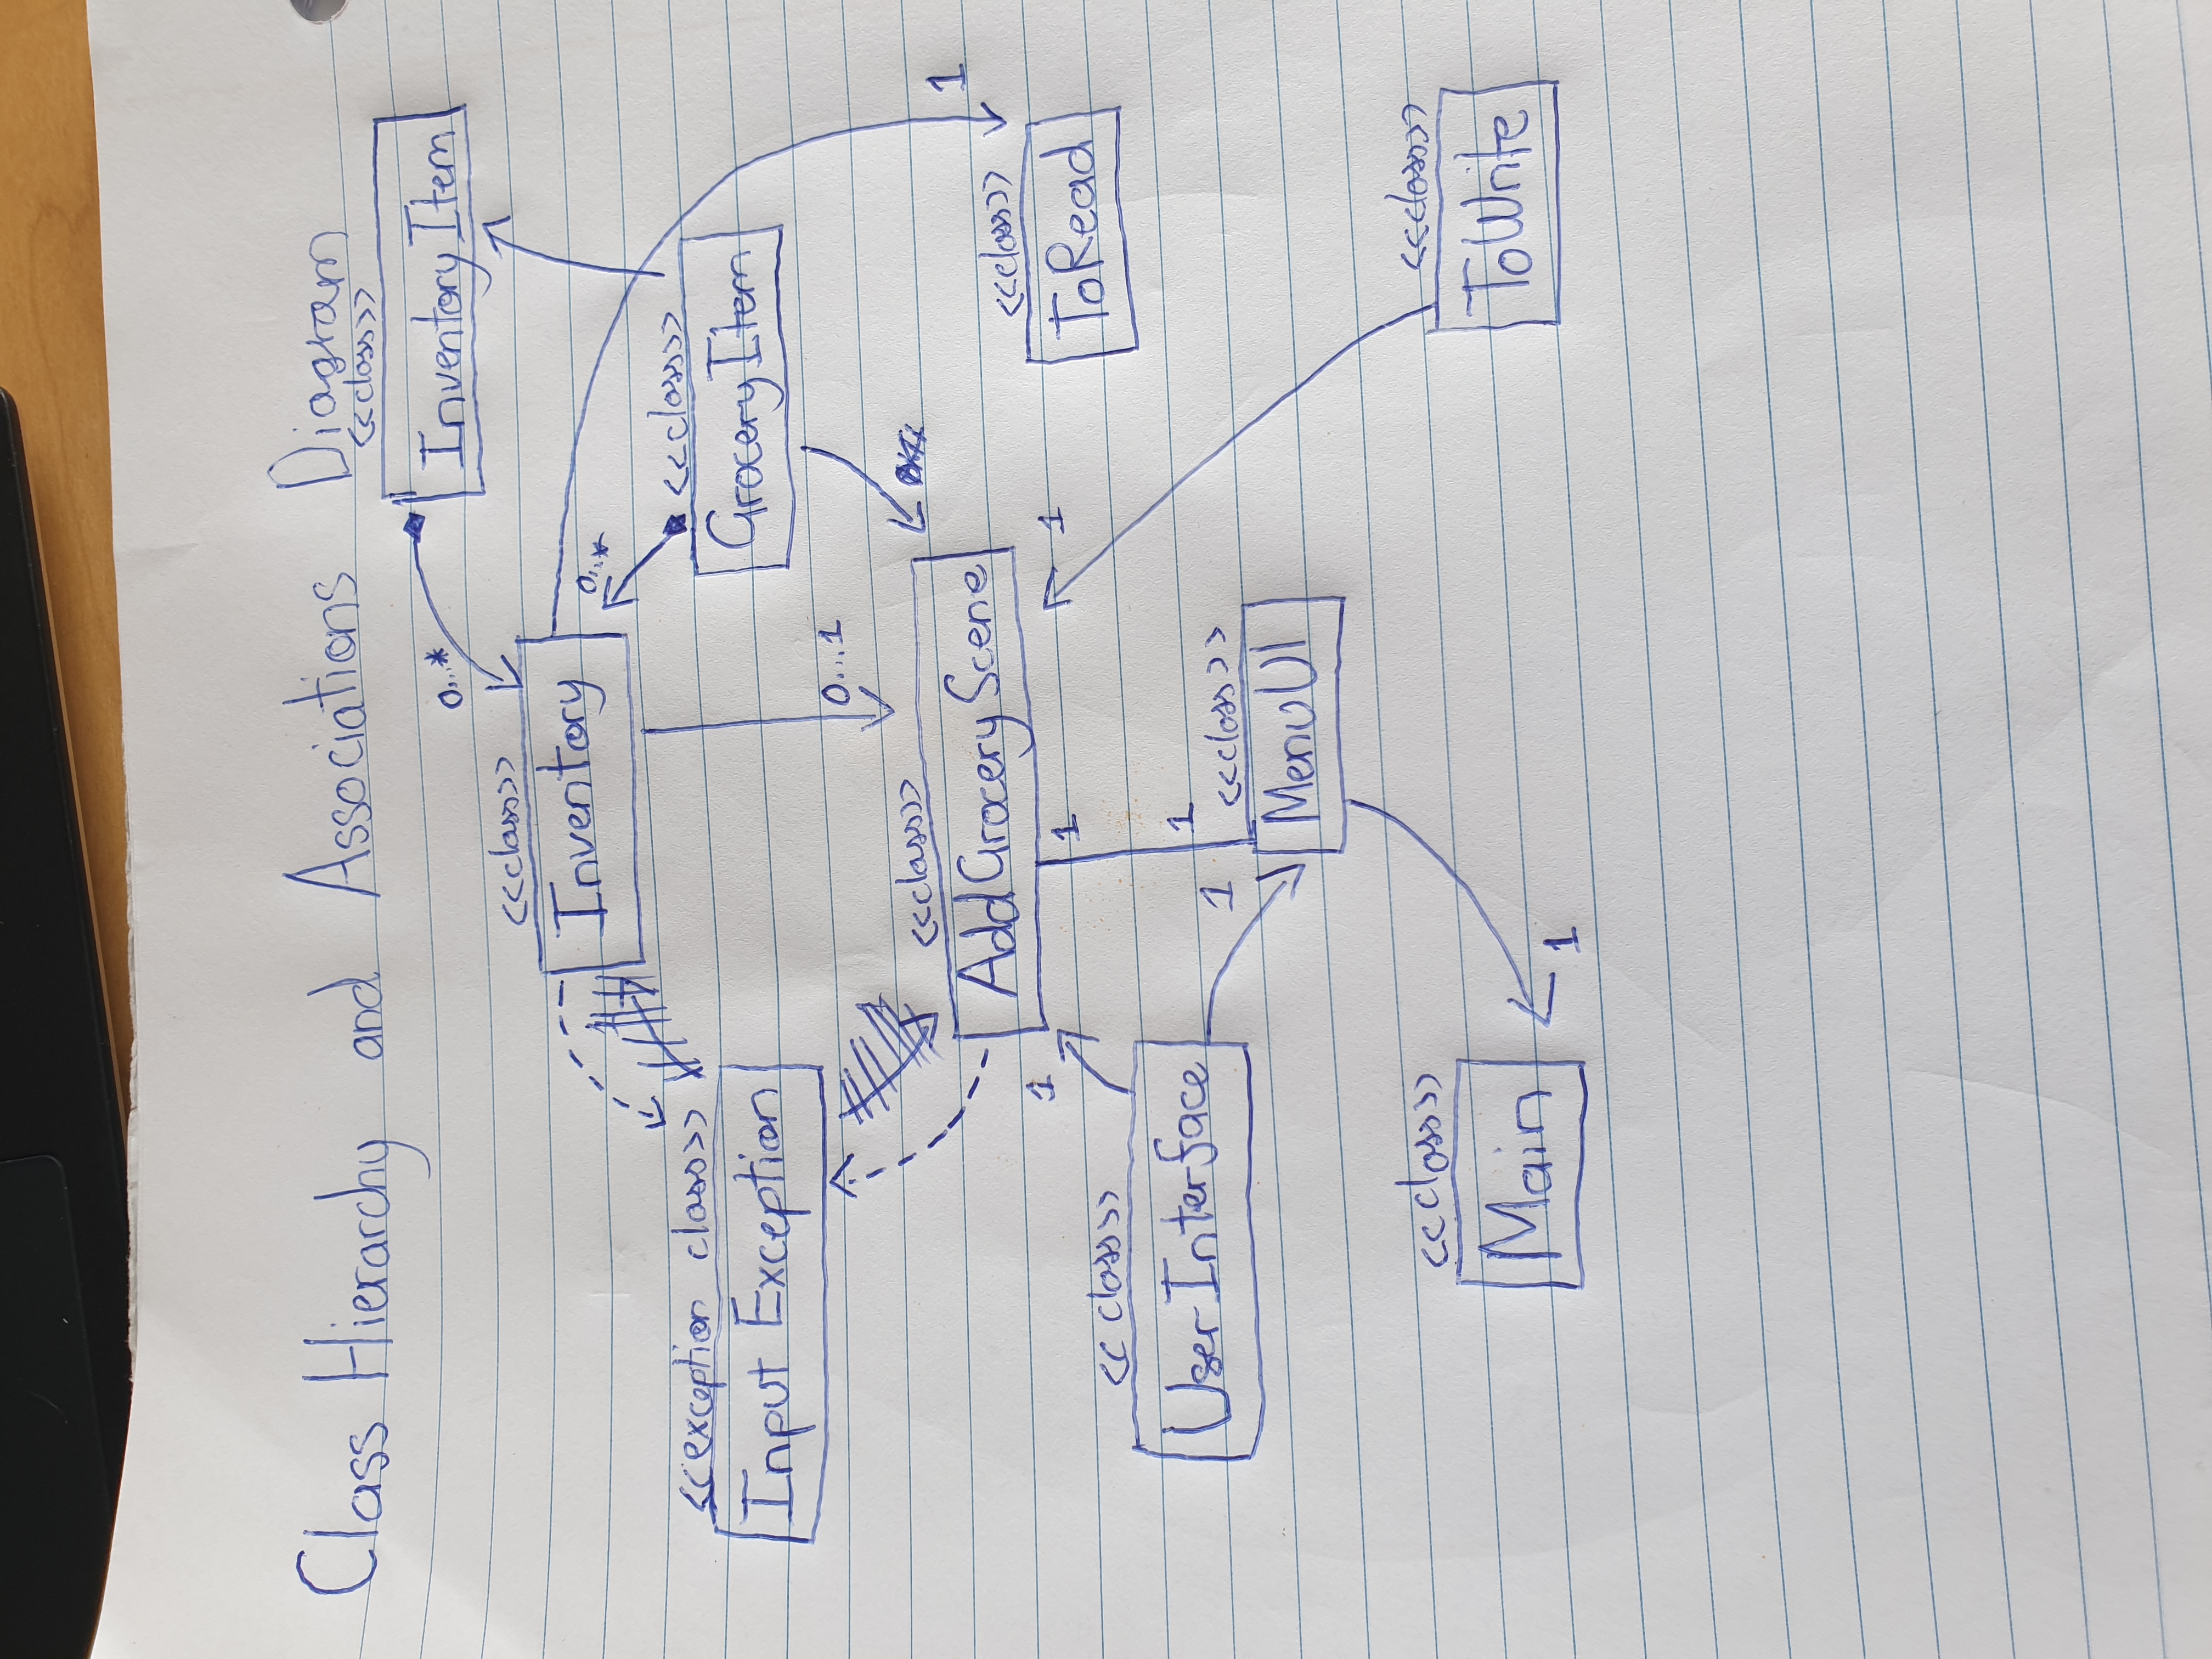 Class Hierarchy and Associations Diagram
<<class>>
InventoryItem
0...*
<<class>>
Inventory
0...*
<<class>>
GroceryItem
<<exception class>>
Input Exception
0...1
<<class>>
AddGroceryScene
1
<<class>>
ToRead
1
1
1
<<class>>
UserInterface
1
1
<<class>>
MenuUI
<<class>>
Main
1
<<class>>
ToWrite